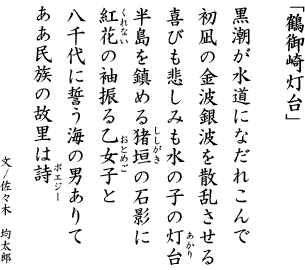 「鶴御崎灯台」
黒潮が水道になだれこんで
初凪の金波銀波を散乱させる
喜びも悲しみも水の子の灯台
あかり
半島を鎮める猪垣の石影に
ししがき
紅花の袖振る乙女子と
くれない
おとめご
八千代に誓う海の男ありて
ああ民族の故里は詩
ポエジー
文／佐々木　均太郎